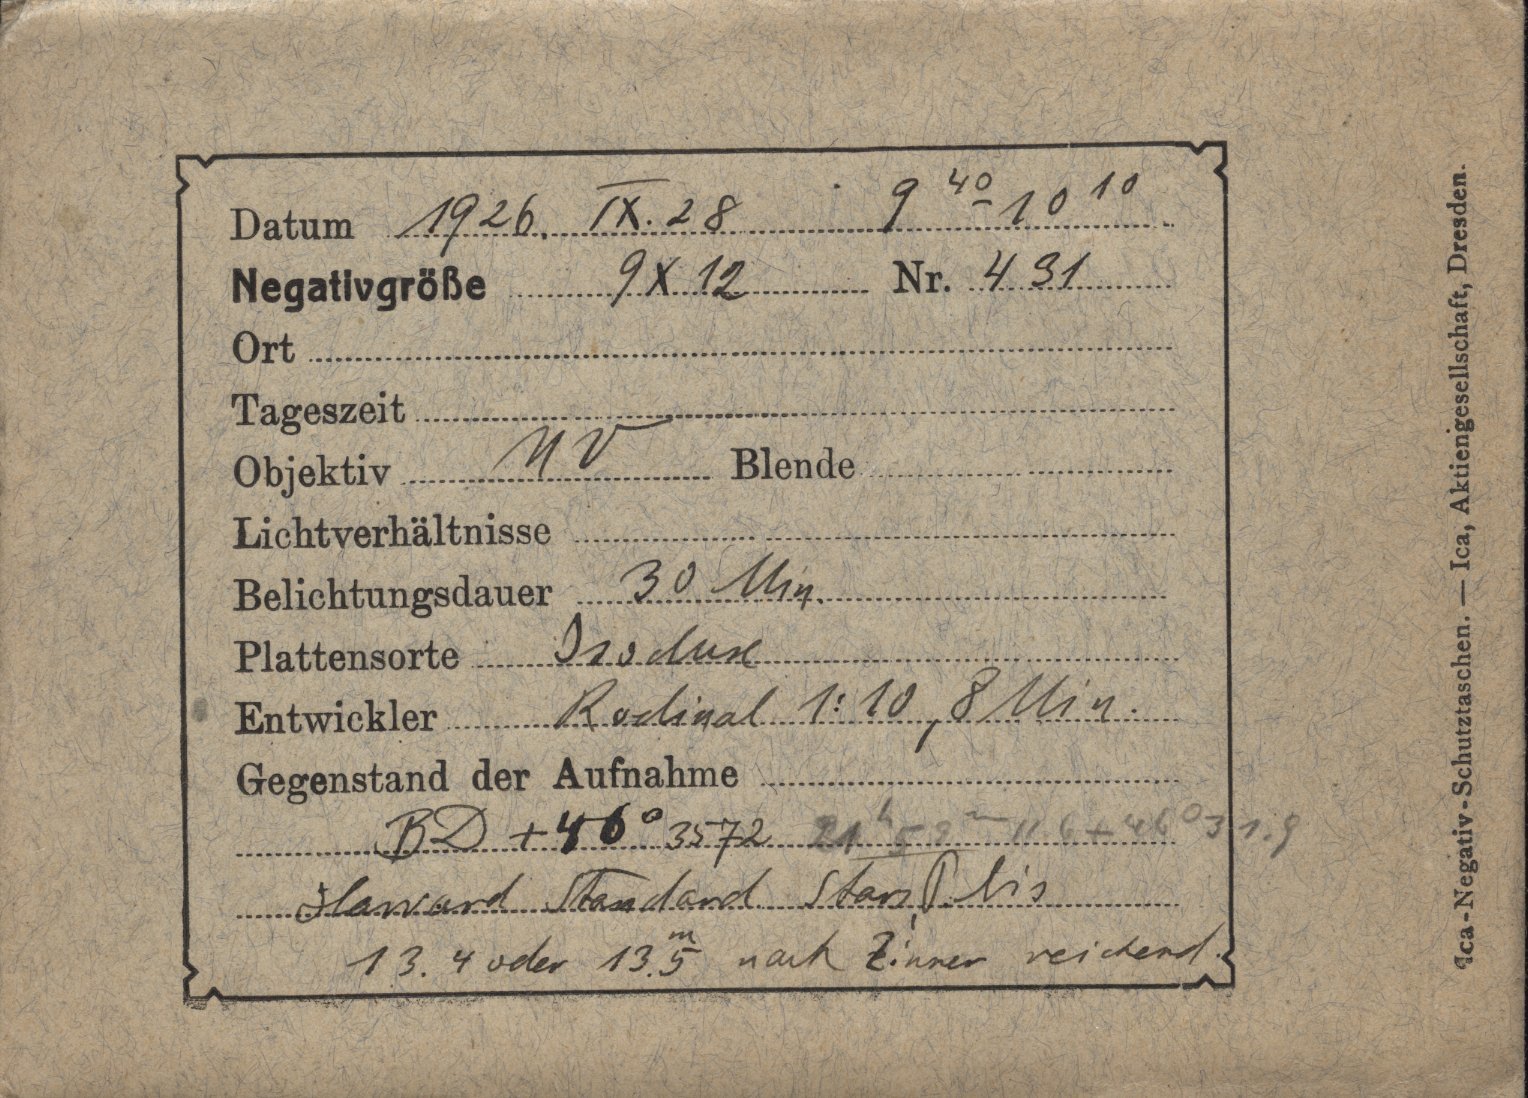 Datum 1926. IX. 28 9 40 - 10 10
Negativgröße 9 X 12 Nr. 431
Ort
Tageszeit
Objektiv UV Blende
Lichtverhältnisse
Belichtungsdauer 30 Min.
Plattensorte Isodux
Entwickler Rodinal 1:10, 8 Min.
Gegenstand der Aufnahme
BD +46° 3572 21h 59m 11.6 + 46° 31.9
Harvard Standard Stars bis
13.4 oder 13.5 m nach Zinner reichend.
Ica-Negativ-Schutztaschen. — Ica, Aktiengesellschaft, Dresden.